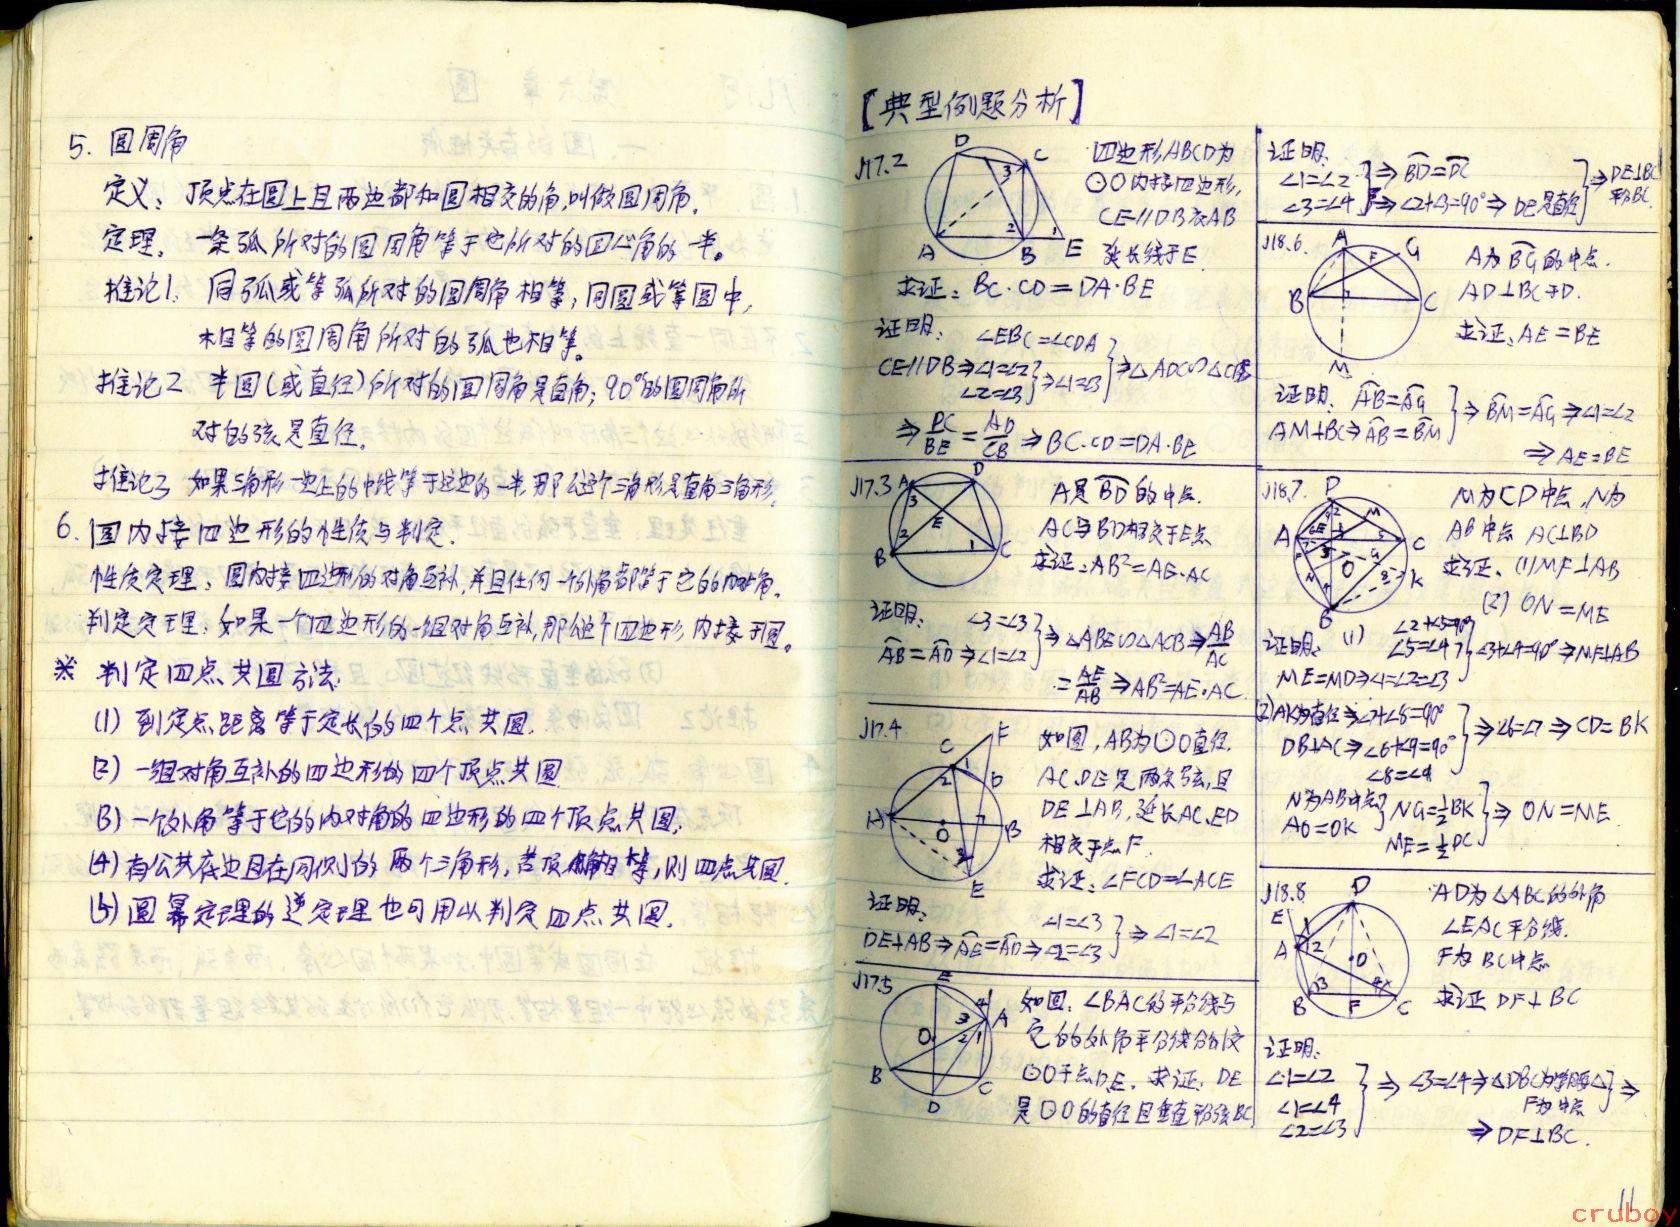 5. 圆周角
定义: 顶点在圆上且两边都和圆相交的角,叫做圆周角.
定理. 一条弧所对的圆周角等于它所对的圆心角的一半。
推论1. 同弧或等弧所对的圆周角相等;同圆或等圆中,
相等的圆周角所对的弧也相等。
推论2 半圆(或直径)所对的圆周角是直角;90°的圆周角所
对的弦是直径.
推论3 如果三角形一边上的中线等于这边的一半,那么这个三角形是直角三角形.
6. 圆内接四边形的性质与判定.
性质定理: 圆内接四边形的对角互补,并且任何一个外角都等于它的内对角.
判定定理: 如果一个四边形的一组对角互补,那么这个四边形内接于圆。
※ 判定四点共圆方法:
(1) 到定点距离等于定长的的四个点共圆.
(2) 一组对角互补的四边形的四个顶点共圆
(3) 一个外角等于它的内对角的四边形的四个顶点共圆.
(4) 有公共底边且在同侧的两个三角形,若顶角相等,则四点共圆.
(5) 圆幂定理的逆定理也可用以判定四点共圆.
【典型例题分析】
J17.2
D
C
3
A
2
B
1
E
四边形ABCD为
⊙O内接四边形,
CE∥DB交AB
延长线于E.
求证: BC·CD=DA·BE
证明:
∠EBC=∠CDA
CE∥DB⇒∠1=∠2
∠2=∠3
⇒∠1=∠3
⇒△ADC∽△CBE
⇒ DC/BE = AD/CB ⇒ BC·CD=DA·BE
J17.3
A
D
3
2
E
B
1
C
A是BD的中点.
AC与BD相交于E点
求证:AB²=AE·AC
证明:
∠3=∠3
AB=AD⇒∠1=∠2
⇒△ABE∽△ACB⇒AB/AC
=AE/AB ⇒AB²=AE·AC
J17.4
F
C
1
D
2
A
O
B
3
E
如图,AB为⊙O直径.
AC.DE是两条弦,且
DE⊥AB,延长AC.ED
相交于点F.
求证:∠FCD=∠ACE
证明:
∠1=∠3
DE⊥AB⇒AE=AD⇒∠2=∠3
⇒∠1=∠2
J17.5
E
4
3
A
O
2
1
B
C
D
如图: ∠BAC的平分线与
它的的外角平分线分别交
⊙O于点D.E. 求证: DE
是⊙O的直径且垂直平分弦BC
证明:
∠1=∠2
∠3=∠4
⇒BD=DC
⇒∠2+∠3=90°⇒DE是直径
⇒DE⊥BC
平分BC.
J18.6.
A
F
G
B
C
M
A为BG的中点.
AD⊥BC于D.
求证:AE=BE
证明: AB=AG
AM⊥BC⇒AB=BM
⇒BM=AG⇒∠1=∠2
⇒AE=BE
J18.7.
D
M
A
E
C
O
G
N
K
B
M为CD中点,N为
AB中点 AC⊥BD
求证. (1)MF⊥AB
(2) ON=ME
证明: (1)
∠2+∠5=90°
∠5=∠4
ME=MD⇒∠1=∠2=∠3
∠3+∠4=90°⇒MF⊥AB
(2)AK为直径⇒∠7+∠8=90°
DB⊥AC⇒∠6+∠9=90°
∠8=∠9
⇒∠6=∠7⇒CD=BK
N为AB中点
AO=OK
NG=½BK
ME=½DC
⇒ ON=ME.
J18.8.
D
E
1
A
2
O
3
4
B
F
C
AD为△ABC的外角
∠EAC平分线.
F为BC中点
求证 DF⊥BC
证明:
∠1=∠2
∠1=∠4
∠2=∠3
⇒ ∠3=∠4⇒△DBC为等腰△
F为中点
⇒
⇒ DF⊥BC.
11
cruboy